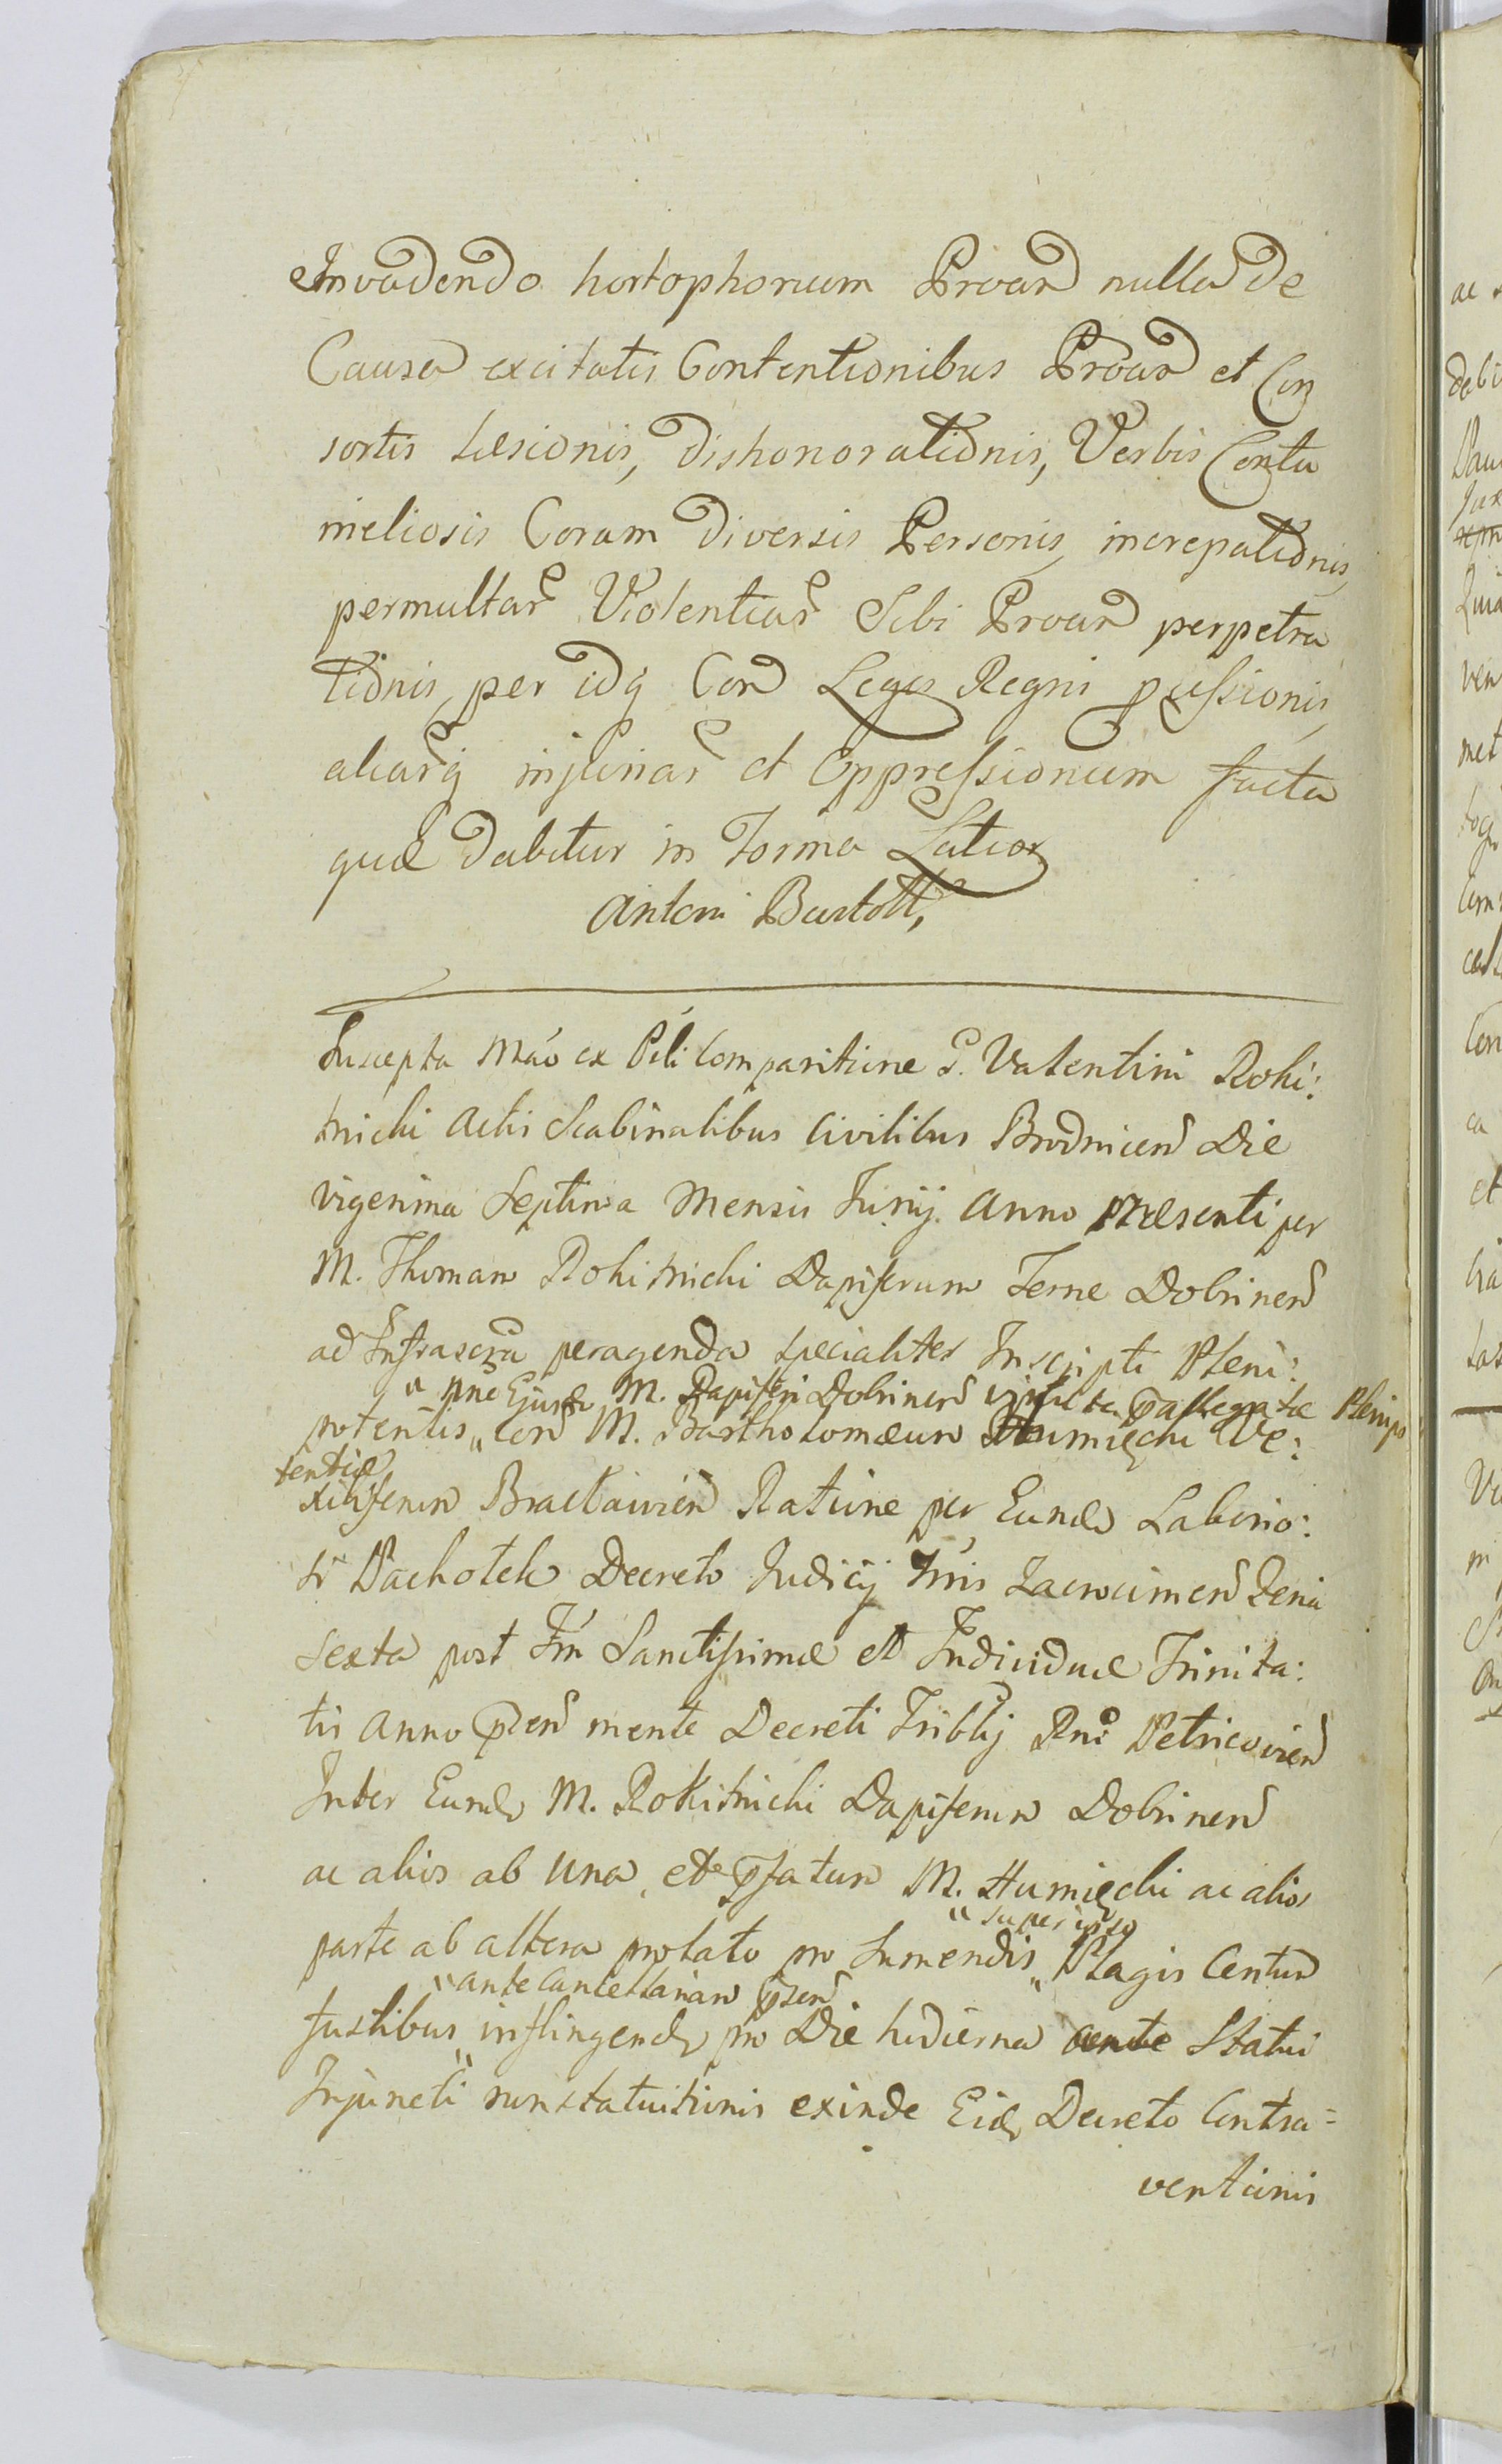 Invadendo hortophorum Proan nulla de
Causa excitatis Contentionibus Proan et Con
sortis Læsionis, dishonorationis, Verbis Contu
meliosis Coram diversis Personis, increpationis,
permultar Violentiar Sibi Proan perpetra
tionis, per idq Con Leges Regni pæssionis,
aliarq injuriar et Oppressionum facta
quæ dabitur in Forma Latior
Antoni Bartolt,
Suscepta Mâo ex Pâli Comparitione G. Valentini Roki:
tnicki Actis Scabinalibus Civilibus Brodnicen Die
vigesima Septima Mensis Junij Anno præsenti per
M. Thomam Rokitnicki Dapiferum Terræ Dobrinen
ad Infrascra peragenda specialiter Inscripti Pleni:
" nne Ejusd M. Dapiferi Dobrinen allegatæ Plenipo
potentis " Con M. Bartholomæum Humięcki Ve:
tentiæ
xiliferum Bractavien Ratione per Eund Laborio:
si Pachotek Decreto Judicij Tris Zacrocimen Feria
Sexta post Fm Sanctissimæ et Individuæ Trinita:
tis Anno pren mente Decreti Tribly Rni Petricovien
Inter Eund M. Rokitnicki Dapiferum Dobrinen
ac alios ab una, et pfatum M. Humięcki ac alios
parte ab altera prolato pro Sumendis " Plagis Centum
" super ipso
" ante Cancellariam psen
fustibus " infligend pro Die hodierna Statui
Injuncti nonstatuitionis exinde Eid Decreto Contra=
ventionis